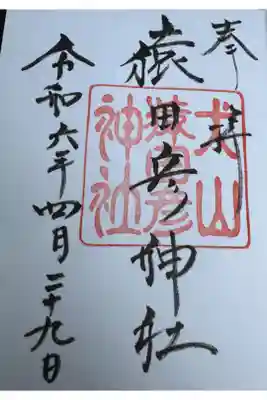 奉拝
犬山
猿田彦
神社
猿田彦神社
令和六年四月二十九日